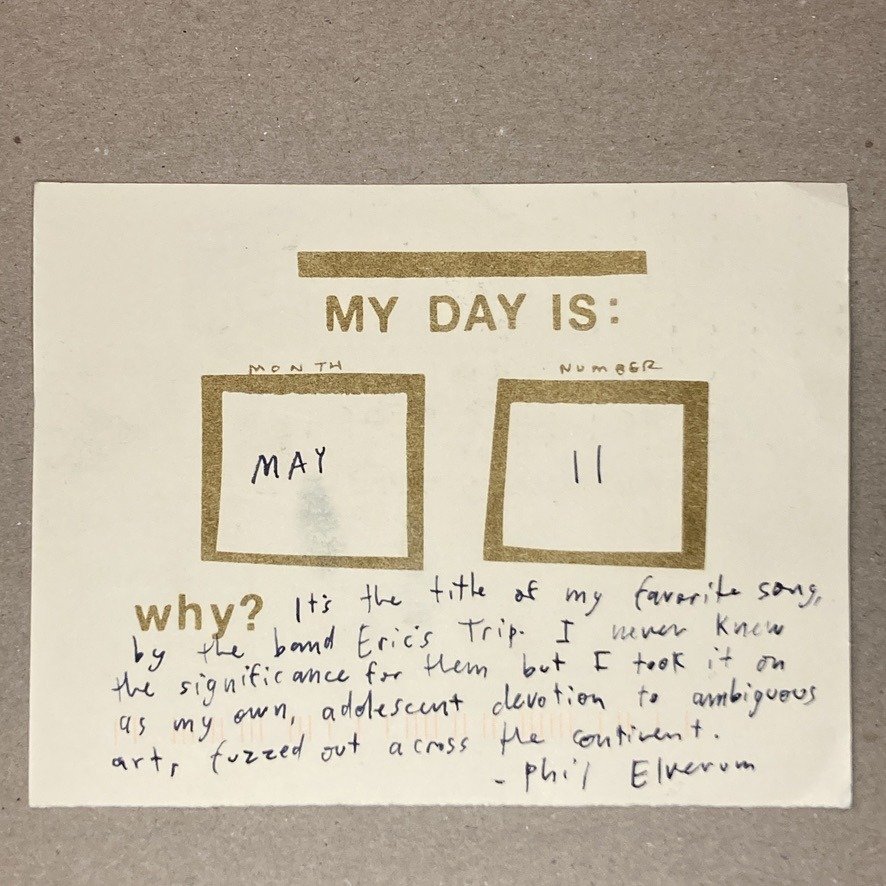 MY DAY IS:
MONTH NUMBER
MAY 11
why? It's the title of my favorite song,
by the band Eric's Trip. I never knew
the significance for them but I took it on
as my own, adolescent devotion to ambiguous
art, fuzzed out across the continent.
- Phil Elverum